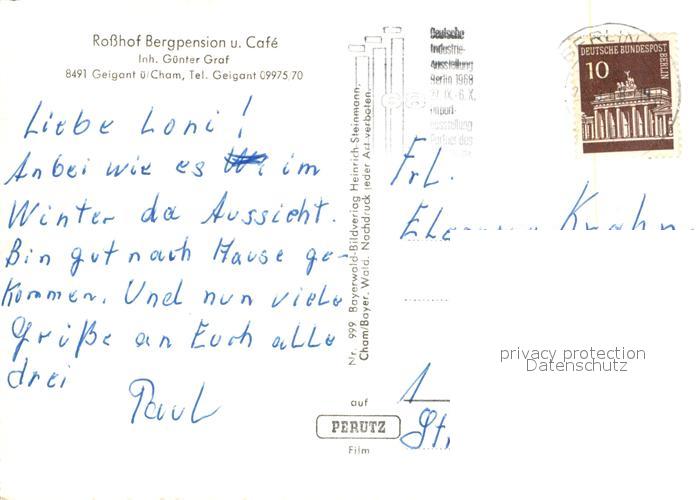 Roßhof Bergpension u. Café
Inh. Günter Graf
8491 Geigant ü/Cham, Tel. Geigant 09975/70
Liebe Loni!
Anbei wie es im
Winter da Aussieht.
Bin gut nach Hause ge-
kommen. Und nun viele
Grüße an Euch alle
drei
Paul
Nr. 999 Bayerwald-Bildverlag Heinrich Steinmann,
Cham/Bayer. Wald. Nachdruck jeder Art verboten.
auf
PERUTZ
Film
Deutsche
Industrie-
Ausstellung
Berlin 1968
27. IX.-6. X.
Import-
ausstellung
Partner des
BERLIN
DEUTSCHE BUNDESPOST
BERLIN
10
Frl.
Krahn
1
St.
privacy protection
Datenschutz